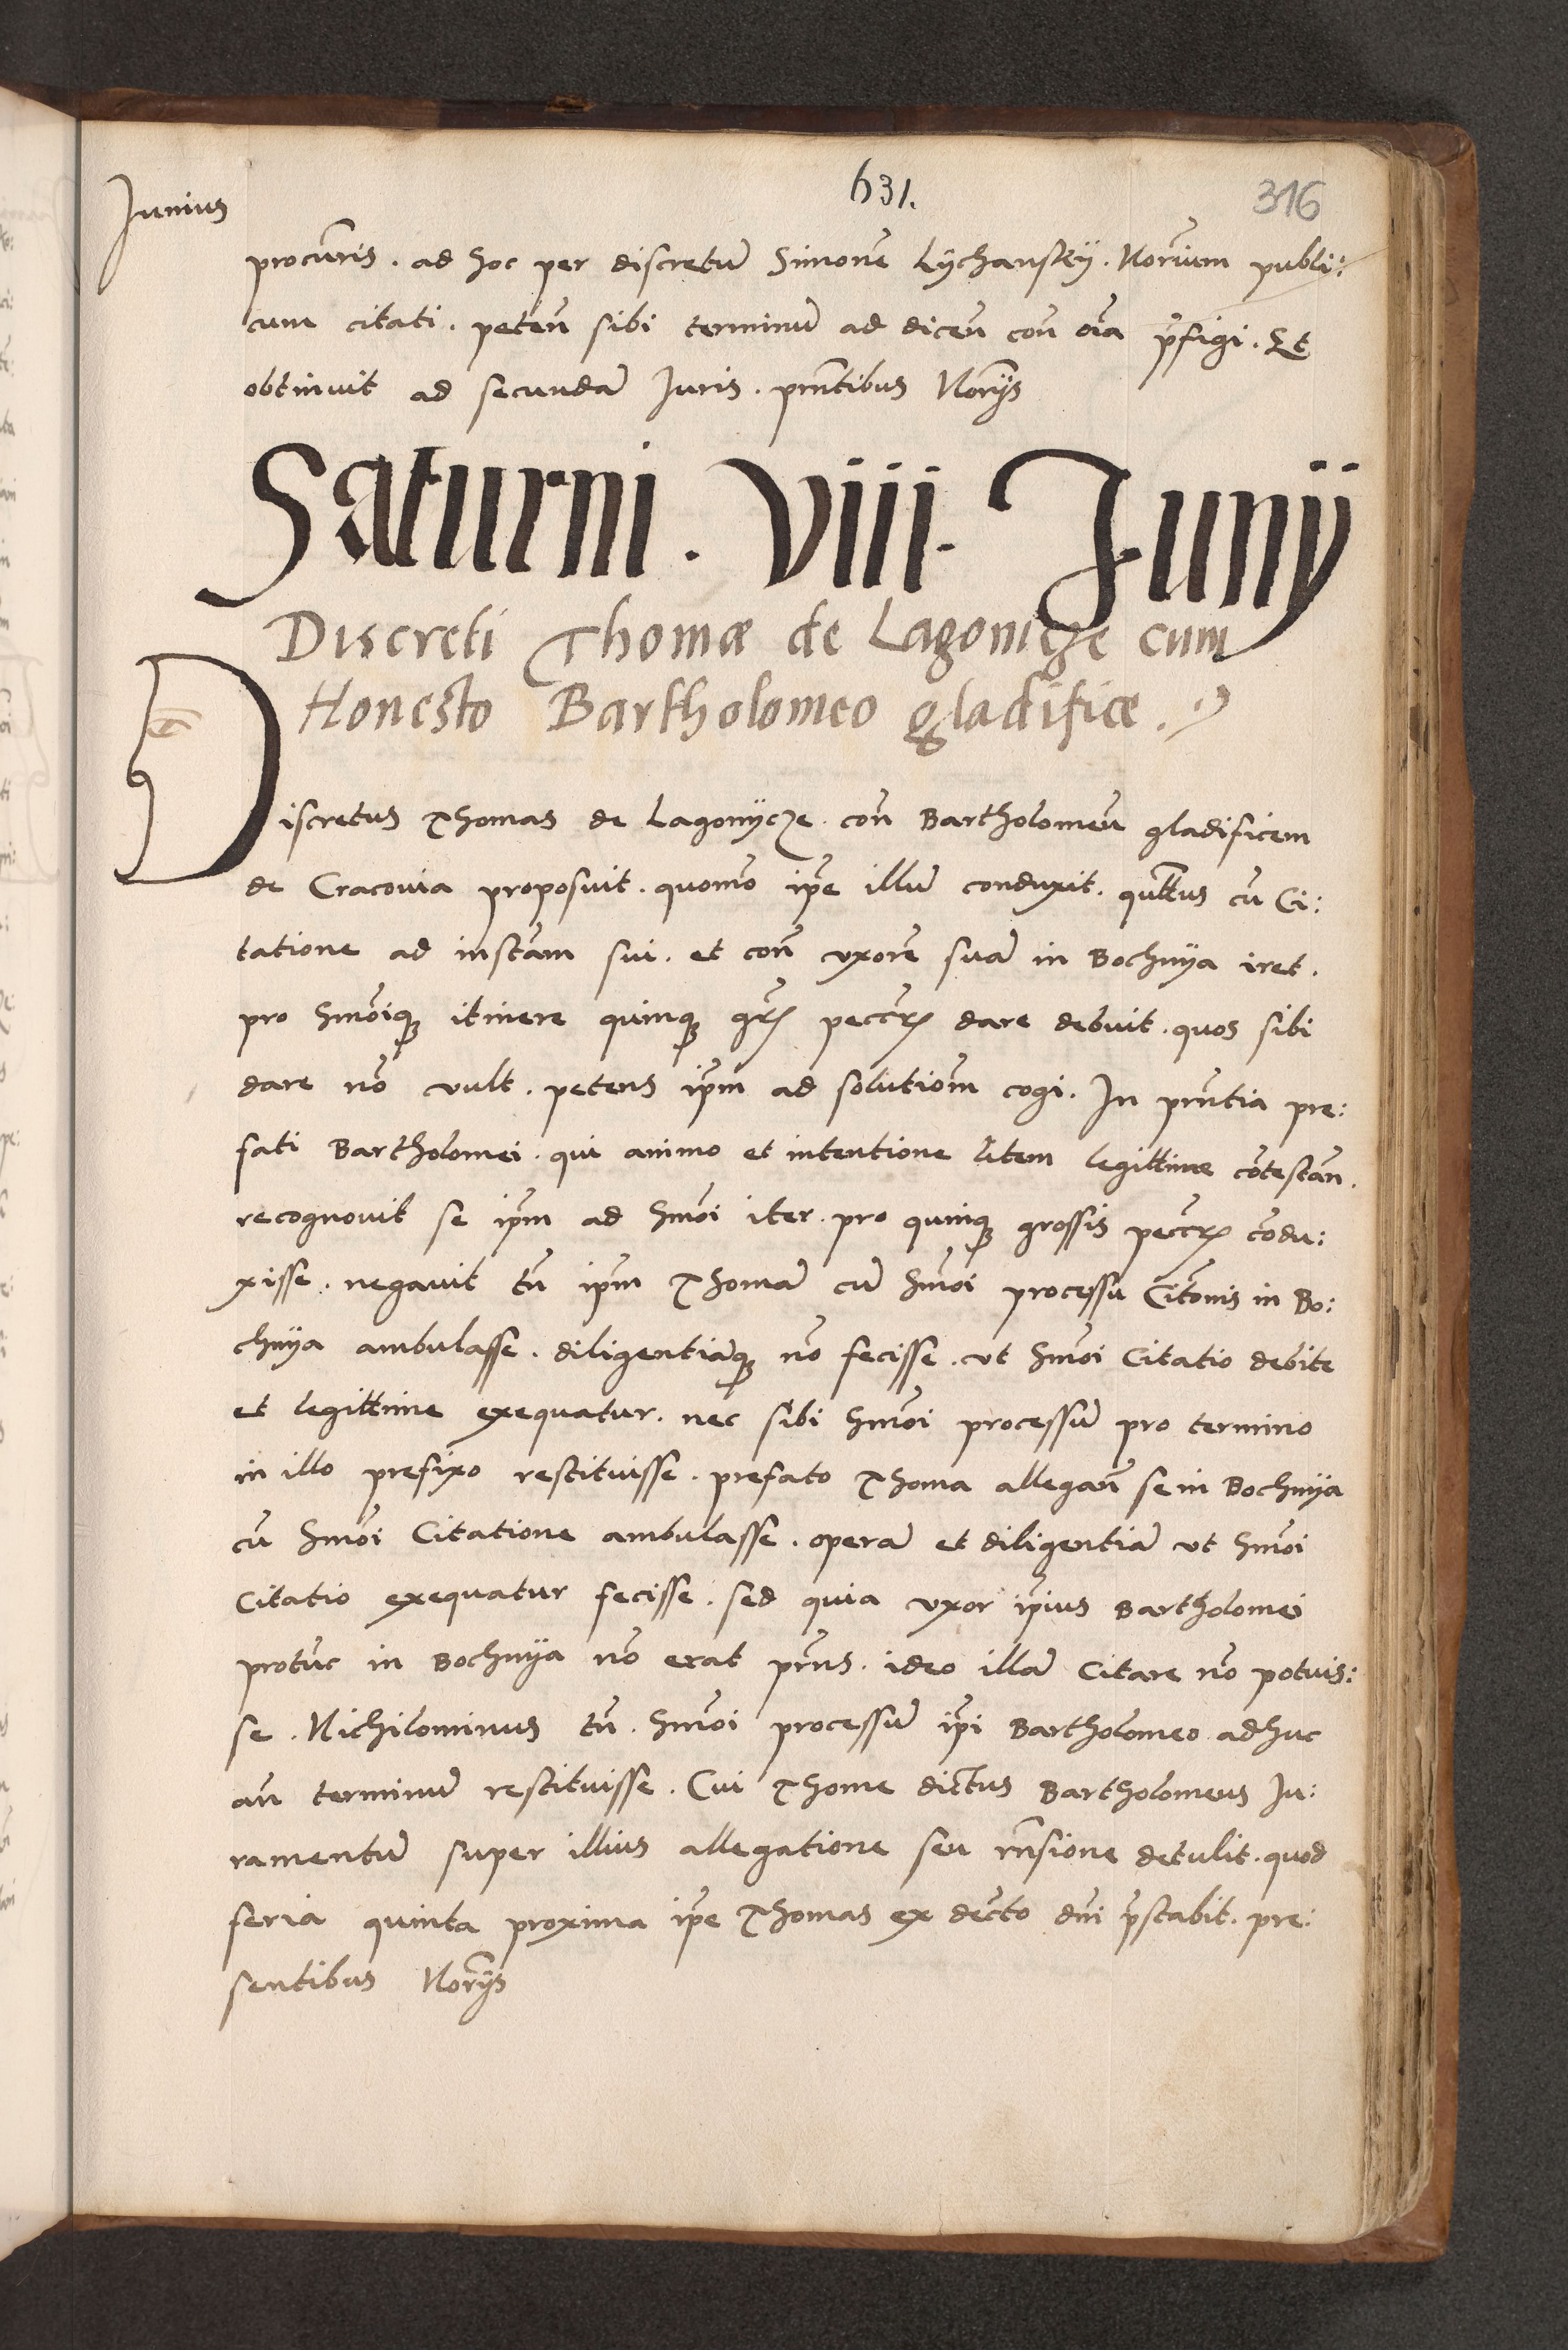 Junius
631.
316
procuris . ad hoc per discretu Simone Lychansky . Norium publi:
cum citati . peten sibi terminu ad dicen con oia pfigi . Et
obtinuit ad secunda Juris . pntibus Norijs
Saturni . viii . Junij
Discreti Thomæ de Lagonicze cum
Honesto Bartholomeo gladifice .
Discretus Thomas de Lagonycze con Bartholomeu gladificem
de Cracovia proposuit . quomo ipe illu conduxit . qutus cu Ci:
tatione ad instam sui . et con vxore sua in Bochnya iret .
pro hmoiq itinere quinq grs peccrs dare debuit . quos sibi
dare no vult . petens ipm ad solutiom cogi . In pntia pre:
fati Bartholomei . qui animo et intentione litem legittime cotestan .
recognovit se ipm ad hmoi iter . pro quinq grossis peccrs codu:
xisse . negavit tn ipm Thoma cu hmoi processu Citonis in Bo:
chnya ambulasse . diligentiaq no fecisse . vt hmoi Citatio debite
et legittime exequatur . nec sibi hmoi processu pro termino
in illo prefixo restituisse . prefato Thoma allegan se in Bochnya
cu hmoi Citatione ambulasse . opera et diligentia vt hmoi
Citatio exequatur fecisse . sed quia vxor ipius Bartholomei
protuc in Bochnya no erat pns . ideo illa Citare no potuis:
se . Nichilominus tn . hmoi processu ipi Bartholomeo adhuc
an terminu restituisse . Cui Thome dictus Bartholomeus Ju:
ramentu super illius allegatione seu rnsione detulit . quod
feria quinta proxima ipe Thomas ex decto dni pstabit . pre:
sentibus Norijs